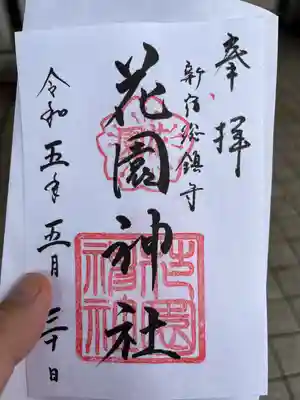 奉拝
新宿総鎮守
花園神社
令和五年五月三十日
花園神社